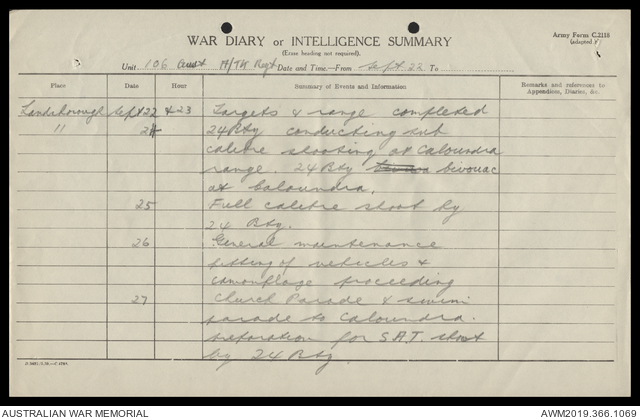 Army Form C.2118
(adapted)
WAR DIARY or INTELLIGENCE SUMMARY
(Erase heading not required).
Unit 106 Aust A/TK Regt Date and Time—From Sept 22 To
Place Date Hour Summary of Events and Information Remarks and references to Appendices, Diaries, &c.
Landsborough Sept 22 & 23 Targets & range completed
" 24 24 Bty conducting sub
calibre shooting at Caloundra
range. 24 Bty bivouac
at Caloundra.
25 Full calibre shoot by
24 Bty.
26 General maintenance
fitting of vehicles &
camouflage proceeding
27 Church Parade & swim
parade to Caloundra.
Preparation for S.A.T. shoot
by 24 Bty
AUSTRALIAN WAR MEMORIAL
AWM2019.366.1069